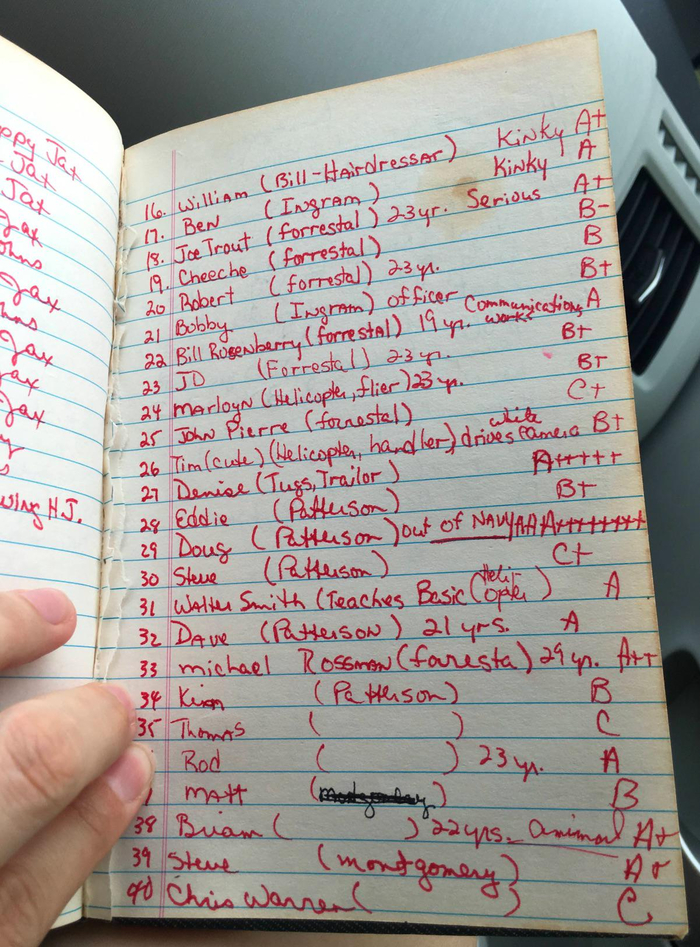 ppy Jax
Jax
Jax
Jax
ohns
Jax
hns
Jax
ax
Jax
wing H.J.
16. William (Bill-Hairdressar) Kinky A+
17. Ben (Ingram) Kinky A
18. Joe Trout (forrestal) 23yr. Serious A+
19. Cheeche (forrestal) B-
20 Robert (forrestal) 23 yr. B
21 Bobby (Ingram) officer B+
22 Bill Rosenberry (forrestal) 19 yr. Communications works A
23 JD (Forrestal) 23 yr. B+
24 Marloyn (Helicopter, flier) 23 yr. B+
25 John Pierre (forrestal) C+
26 Tim (cute) (Helicopter, handler) drives white Camera B+
27 Denise (Tugs, Trailor) A+++++
28 Eddie (Patterson) B+
29 Doug (Patterson) out of NAVY AA A++++++++
30 Steve (Patterson) C+
31 Walter Smith (Teaches Basic (Heli-opter) A
32 Dave (Patterson) 21 yrs. A
33 michael Rossman (faresta) 29 yr. A++
34 Kim (Patterson) B
35 Thomas ( ) C
Rod ( ) 23 yr. A
Matt ( ) B
38 Briam ( ) 22 yrs. animal A+
39 Steve (montgomery) A+
40 Chris Warren ( ) C